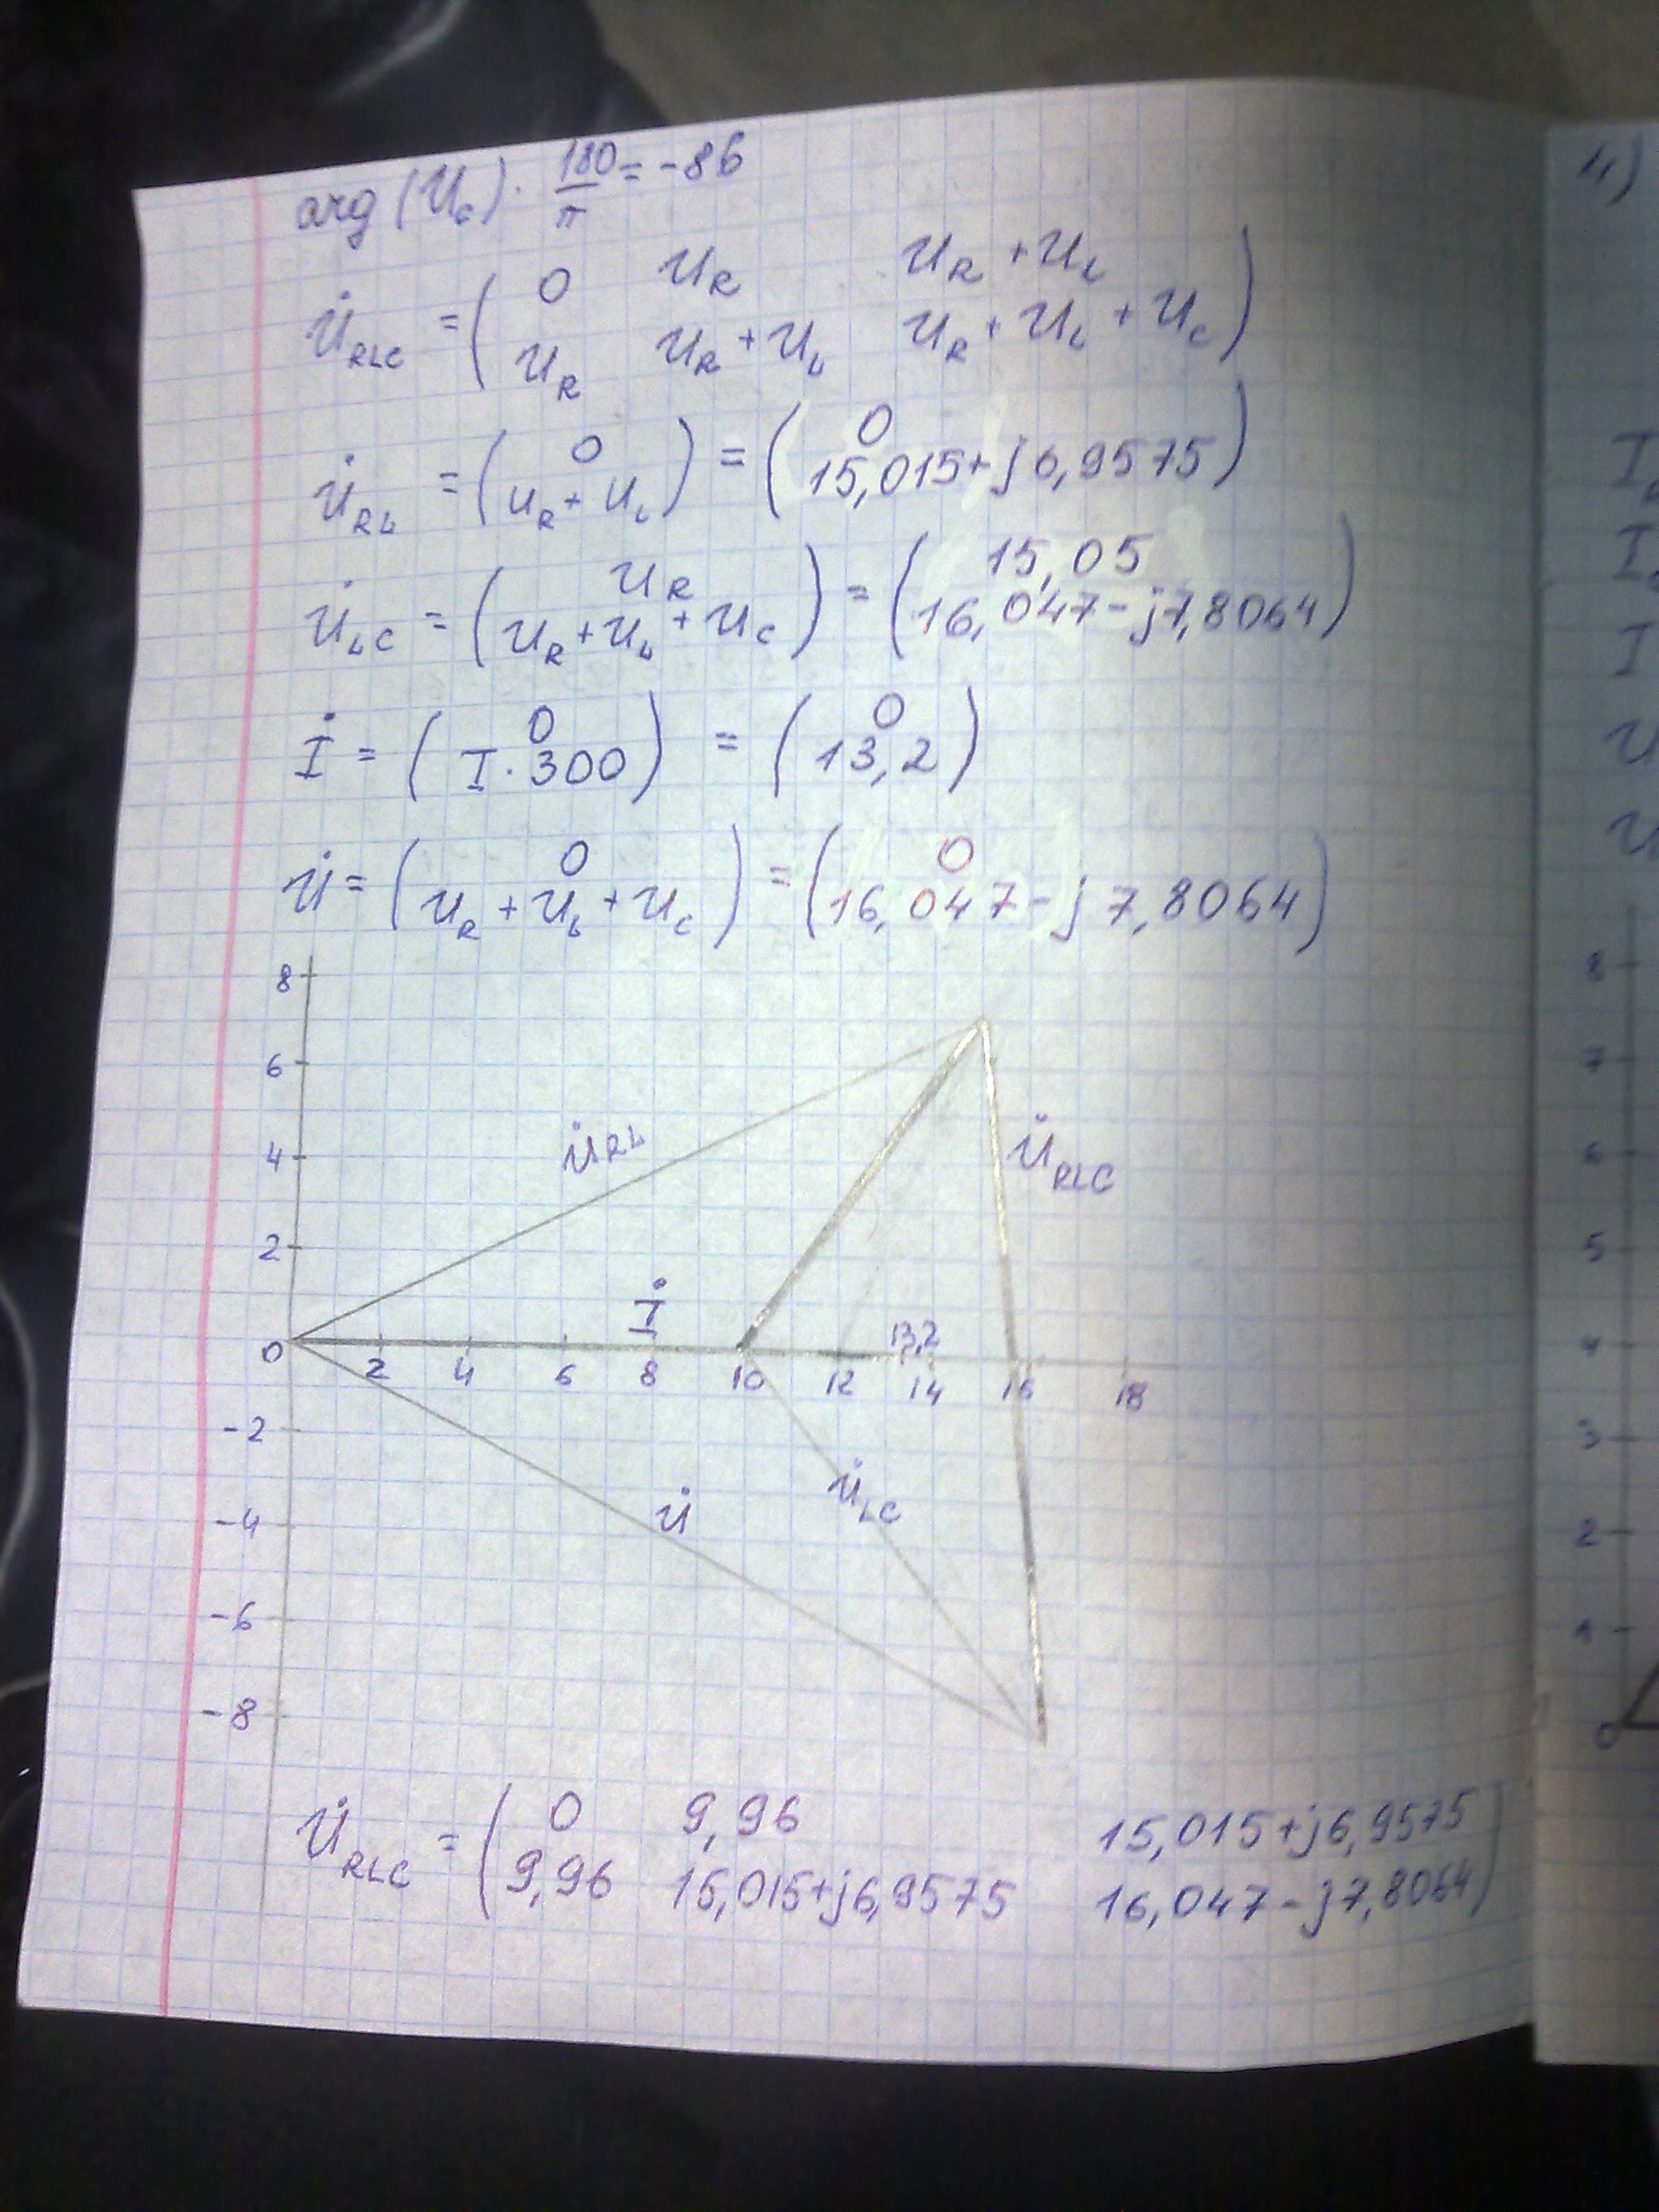 arg (U_c) · 180/π = -86
U̇_RLC = ( 0 U_R U_R + U_L
U_R U_R + U_L U_R + U_L + U_C )
U̇_RL = ( 0 ) = ( 0
U_R + U_L 15,015+j6,9575 )
U̇_LC = ( U_R ) = ( 15,05
U_R + U_L + U_C 16,047-j7,8064 )
İ = ( 0 ) = ( 0 )
I · 300 13,2
U̇ = ( 0 ) = ( 0
U_R + U_L + U_C 16,047-j7,8064 )
8
6
4
2
0
-2
-4
-6
-8
U̇_RL
U̇_RLC
İ
13,2
2 4 6 8 10 12 14 16 18
U̇_LC
U̇
U̇_RLC = ( 0 9,96 15,015+j6,9575
9,96 15,015+j6,9575 16,047-j7,8064 )
4)
I
I
I
U
U
8
7
6
5
4
3
2
1
0